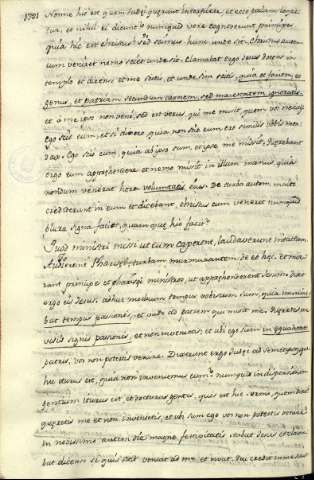 Nonne hic est quem Judęi quęrunt interficere, et ecce palam loqui
tur, et nihil ei dicunt? numquid vere cognoverunt principes
quia hic est christus? sed scimus hunc unde sit, christus autem
cum venerit nemo scit unde sit. Clamabat ergo Jesus docens in
templo et dicens et me scitis, et unde sim scitis,
genus, et patriam secundum carnem, sed maiestatem ignoratis
et a me ipso non veni, sed est verus qui me misit, quem vos nescitis
ego scio eum, et si dixero quia non scio eum ero similis vobis men
dax. Ego scio eum, quia ab ipso sum, et ipse me misit, Quęrebant
ergo eum apprehendere et nemo misit in illum manus quia
nondum venerat hora voluntatis eius. de turba autem multi
crediderunt in eum et dicebant, christus cum venerit numquid
plura signa faciet, quam quę hic facit?
Quod ministri missi ut eum caperent, laudaverunt
Audierunt Pharisęi turbam murmurantem de eo hęc, et mise
runt principes et Pharisęi ministros, ut apprehenderent Jesum dixit
ergo eis Jesus, adhuc modicum tempus vobiscum sum,
tempus passionis, et vado ad patrem qui misit me. Quęretis me
visis signis passionis, et non invenietis, et ubi ego sum in
patris, vos non potestis venire. Dixerunt ergo Judęi ad semetipsos, quo
hic iturus est, quia non inveniemus eum? numquid in dispersionem
gentium iturus est, et docturus gentes, quis est hic sermo, quem dixit
quęretis me et non invenietis, et ubi sum ego vos non potestis venire?
in novissimo autem die magno festivitatis stabat Jesus et clama
bat dicens si quis sitit veniat ad me et bibat. Qui credit in me sicut